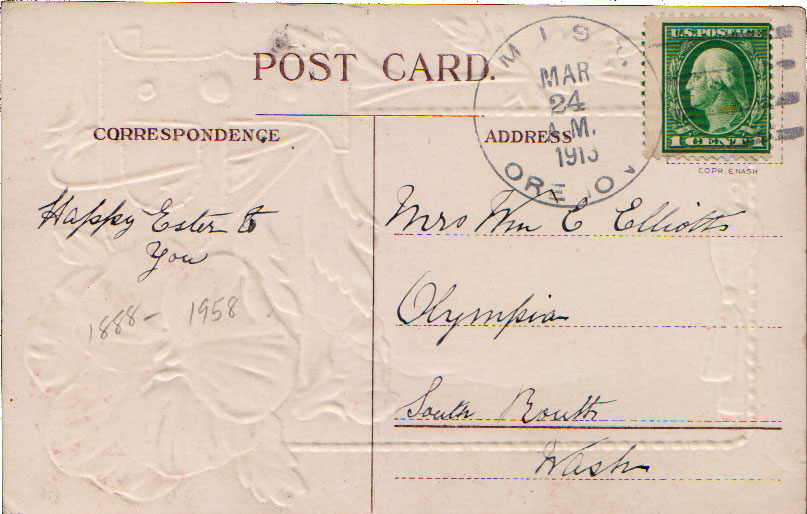 POST CARD.
CORRESPONDENCE
ADDRESS
MIST.
MAR
24
A.M.
1913
U.S. POSTAGE
1 CENT 1
COPR. E. NASH
Happy Ester to
You
1888 - 1958
Mrs Wm C Elliotts
Olympia
South Routh
Wash